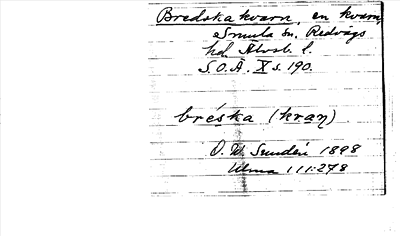 Bredska kvarn, en kvarn,
Smula sn. Redvägs
hd. Älvsb. l.
S.O.Ä. X s. 190.
bréska (kraṇ)
1898
Ulma 111:278